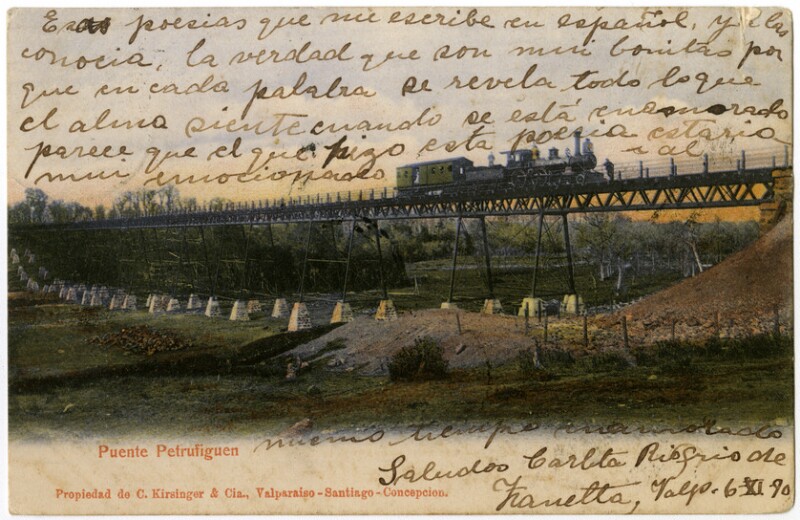 Esas poesias que me escribe en español, ya las
conocia, la verdad que son mui bonitas por
que en cada palabra se revela todo lo que
el alma siente cuando se está enamorado
parece que el que hizo esta poesia estaria
mui emocionado i al
mismo tiempo enamorado
Puente Petrufiguen
Saludos Carlta
Valp. 6 XI
Propiedad de C. Kirsinger & Cia., Valparaiso-Santiago-Concepcion.